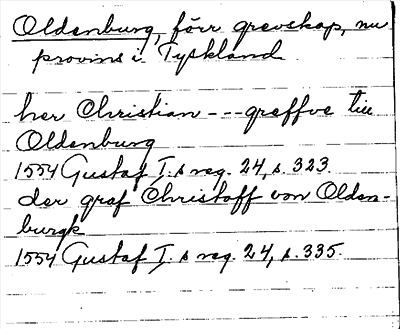 Oldenburg, förr grevskap, nu
provins i Tyskland.
her Christian --- greffve till
Oldenburg
1554 Gustaf I.s reg. 24, s. 323.
der graf Christoff von Olden-
burgk
1554 Gustaf I.s reg. 24, s. 335.